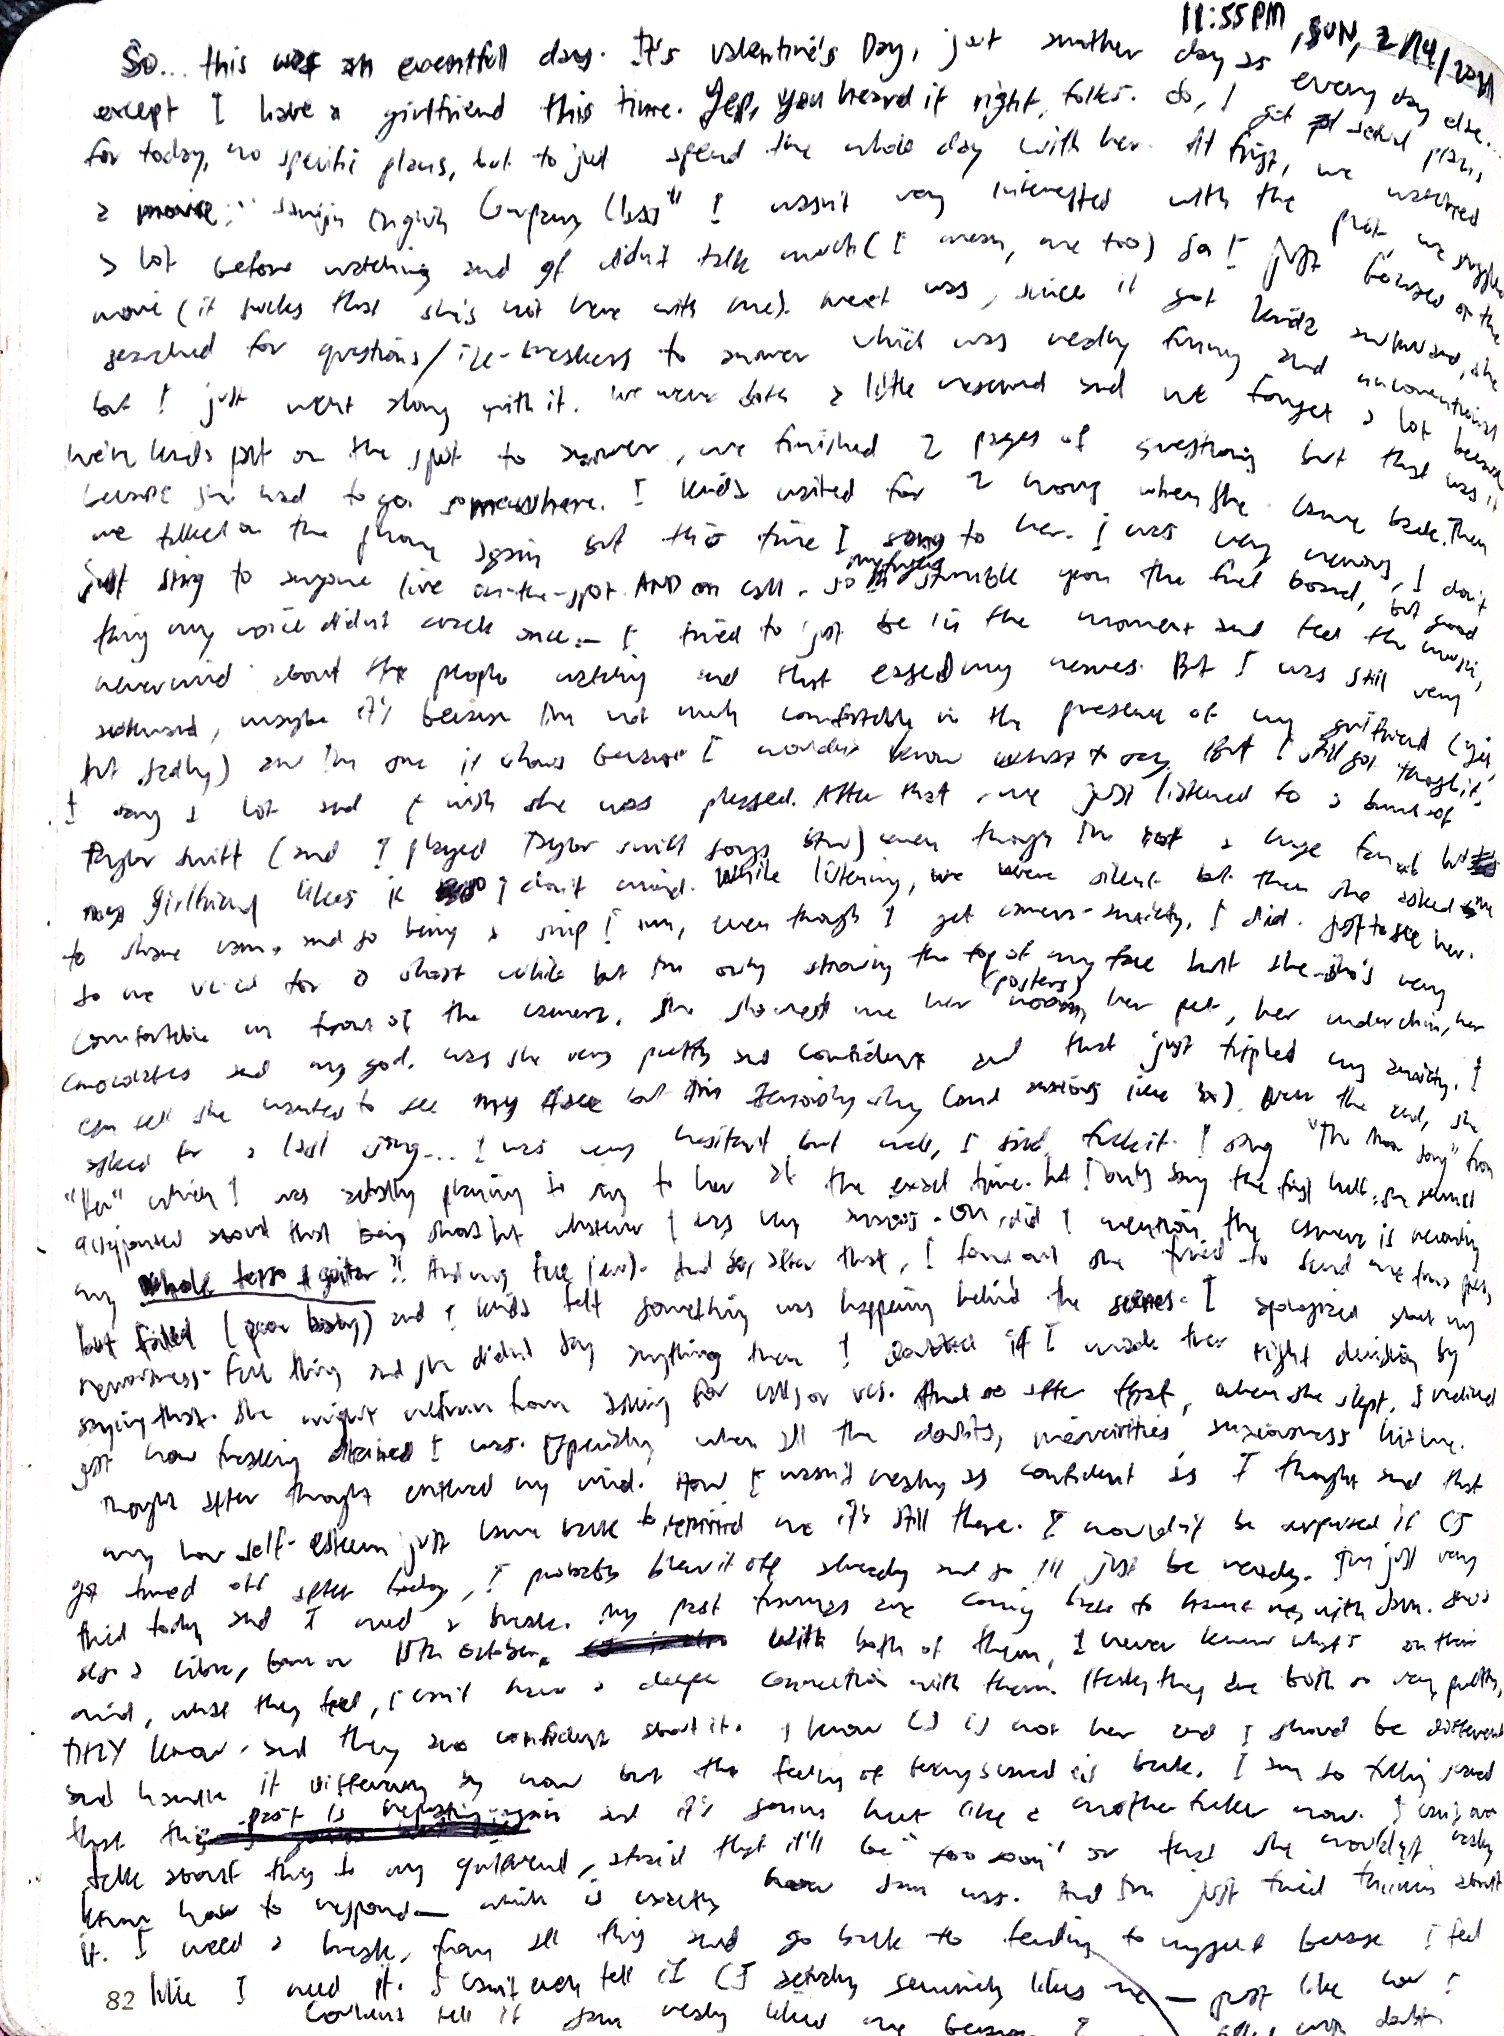 11:55PM, SUN, 2/14/2021
So... this was an eventfull day. It's Valentine's Day, just another day as every day else...
except I have a girlfriend this time. Yep, you heard it right, folks. So, I got actual plans
for today, no specific plans, but to just spend the whole day with her. At first, we watched
a movie: "Samjin English Company Class" I wasn't very interested with the plot, we struggled
a lot before watching and gf didn't talk much (I mean, me too) so I just focused on the
movie (it sucks that she's not here with me). Next was, since it got kinda awkward, she
searched for questions/ice-breakers to answer which was really funny and unconventional
but I just went along with it. We were both a little reserved and we forget a lot because
we're kinda put on the spot to answer, we finished 2 pages of questions but that was it
because she had to go somewhere. I kinda waited for 2 hours when she came back. Then
we talked on the phone again but this time I sang to her. I was very nervous, I don't
just sing to anyone live on-the-spot AND on call. so my fingers stumble upon the fret board, but good
thing my voice didnt crack once — I tried to just be in the moment and feel the music,
nevermind about the people watching and that eased my nerves. But I was still very
awkward, maybe it's because I'm not much comfortable in the presence of my girlfriend (yet,
but sadly) and I'm sure it shows because I wouldn't know what to say. But I still got through it,
I sang a lot and I wish she was pleased. After that, we just listened to a bunch of
Taylor Swift (and I played Taylor Swift songs btw) even though I'm not a huge fan but
my girlfriend likes it so I don't mind. While listening, we were silent but then she asked me
to share cam. and so being a simp I am, even though I get camera-anxiety, I did. Just to see her.
So we vc-ed for a short while but I'm only showing the top of my face but she she's very
comfortable in front of the camera. She showed me her room (posters), her pet, her underchin, her
and my god. was she very pretty and confident and that just tripled my anxiety. I
can tell she wanted to see my face but I'm seriously shy (and anxious like so). Near the end, she
asked for a last song... I was very hesitant but well, I said, fuck it. I sang "The Moon Song" from
"Her" which I was actually planning to sing to her at the exact time. but I only sang the first half, she seemed
disappointed about that being short but whatever I was very anxious. Oh, did I mention the camera is recording
my whole torso & guitar?! And my face (ew). And so, after that, I found out she tried to send me
but failed (poor baby) and I kinda felt something was happening behind the scenes. I apologized about my
nervousness-face thing and she didn't say anything then I doubted if I made the right decision by
saying that. She might refrain from asking for calls or vcs. And so after that, when she slept, I realized
just how freaking drained I was. Especially when all the doubts, insecurities anxiousness hit me.
Thought after thought entered my mind. How I wasn't really as confident as I thought and that
my low self-esteem just came back to remind me it's still there. I wouldn't be surprised if CJ
got turned off after today, I probably blew it off already and so I'll just be ready. I'm just very
tired today and I need a break. My past traumas are coming back to haunt me, with Sam. She's
also a Libra, born on 15th October. With both of them, I never know what's on their
mind, what they feel, I can't have a deeper connection with them. they are both so very pretty,
THEY know. and they are confident about it. I know CJ is not her and I should be different
and handle it differently by now but the feeling of being scared is back. I am so fully scared
that the past is repeating again and it's gonna hurt like a motherfucker now. I can't even
talk about this to my girlfriend, afraid that it'll be "too soon" or that she wouldn't really
know how to respond — which is exactly how Sam was. And I'm just tired thinking about
it. I need a break, from all this and go back to tending to myself because I feel
like I need it. I can't even tell if CJ actually seriously likes me — just like how I
couldn't tell if Sam really liked me because I
82